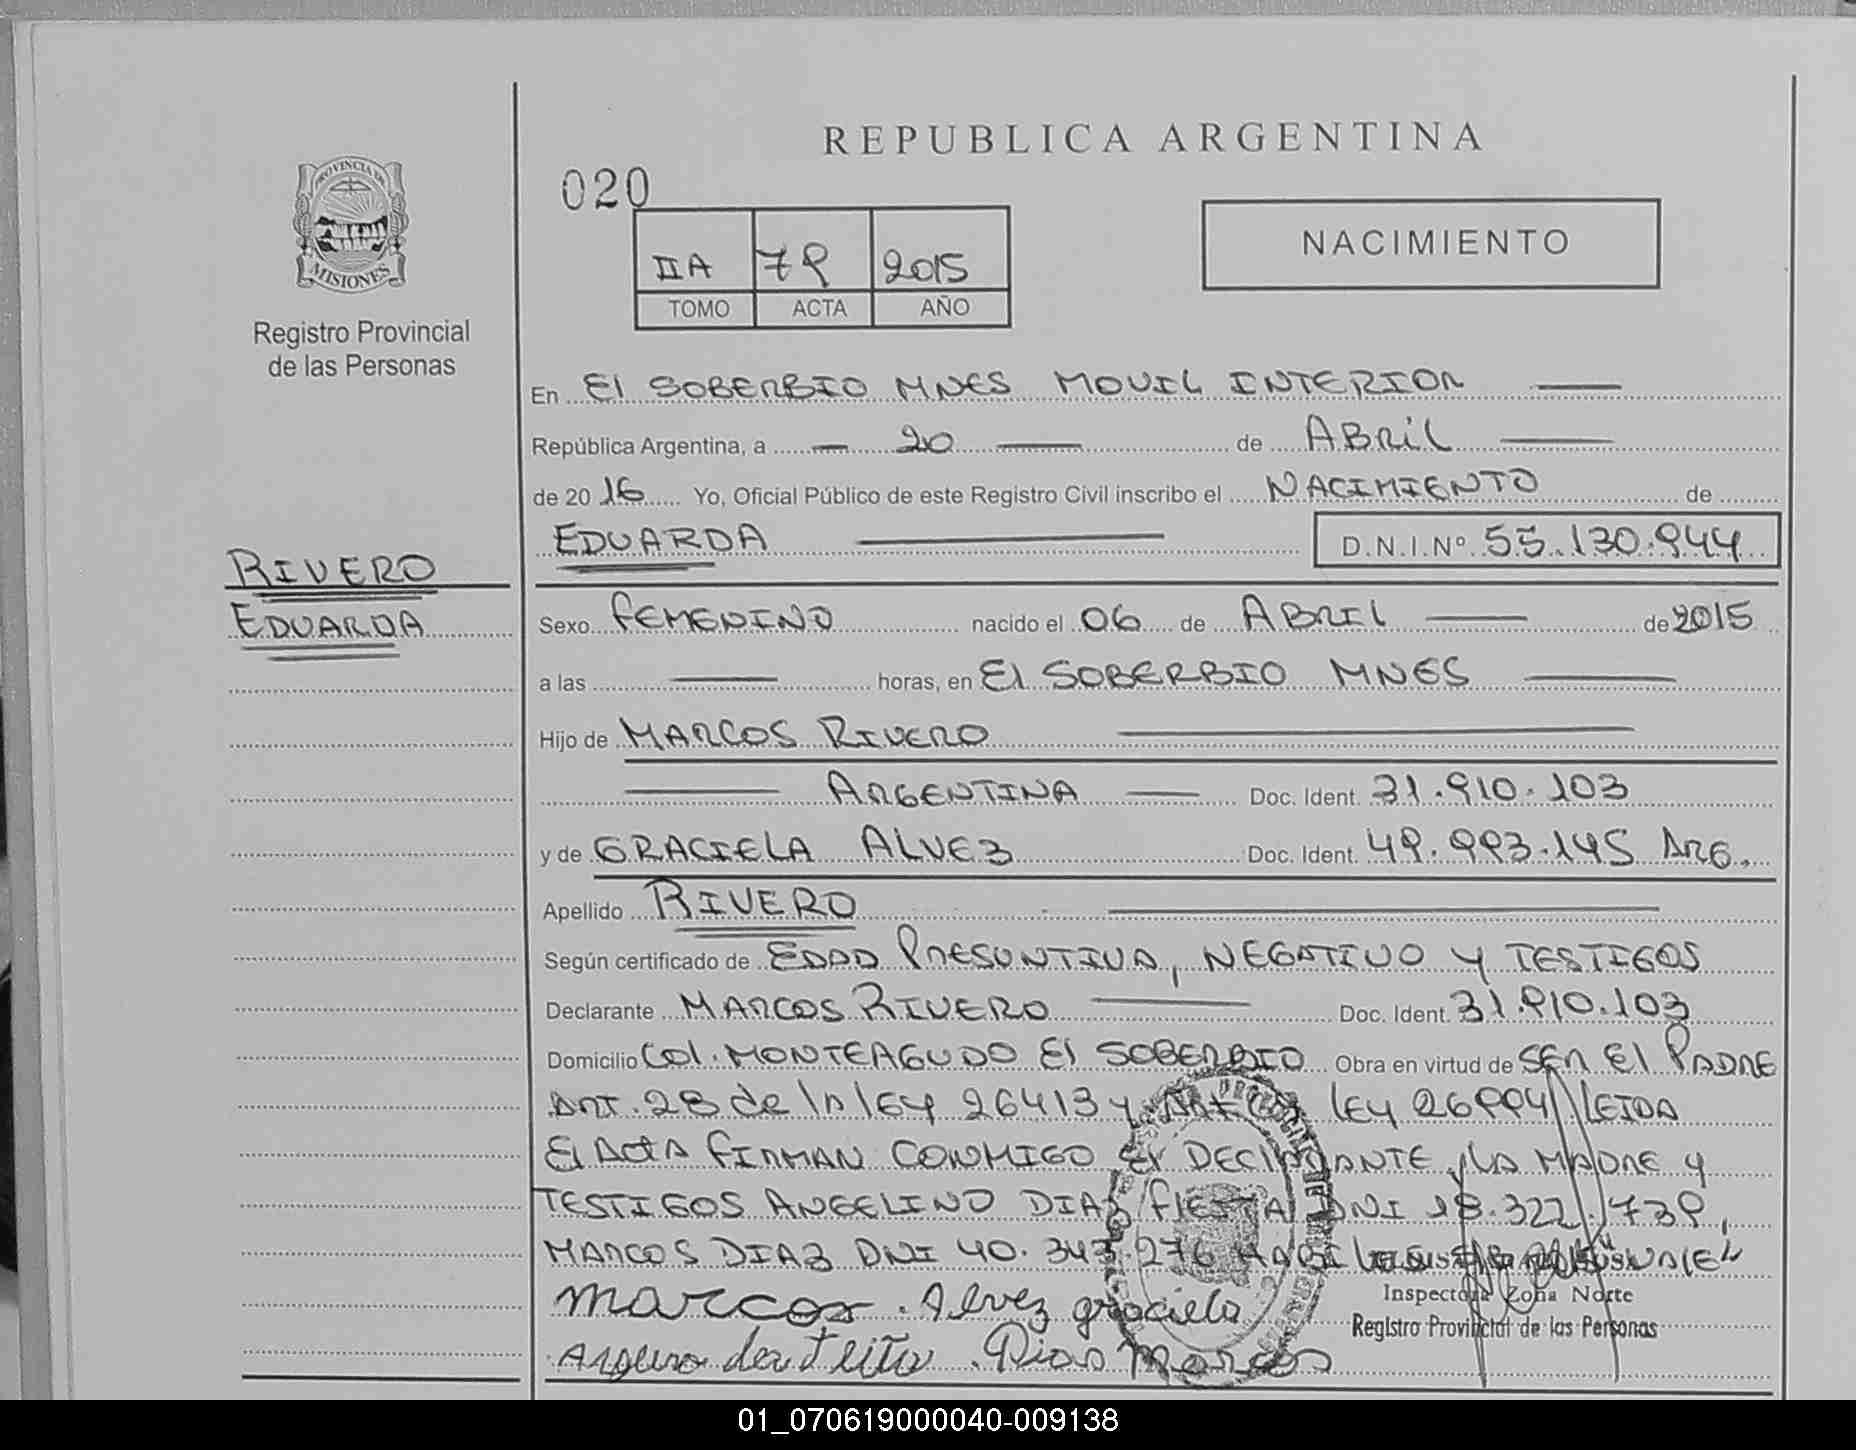 REPUBLICA ARGENTINA
020
PROVINCIA DE
MISIONES
Registro Provincial
de las Personas
NACIMIENTO
IIA 79 2015
TOMO ACTA AÑO
En El SOBERBIO MNES MOVIL INTERIOR
República Argentina, a 20 de ABRIL
de 20 16 Yo, Oficial Público de este Registro Civil inscribo el NACIMIENTO de
EDUARDA D.N.I.Nº 55.130.944
RIVERO
EDUARDA
Sexo FEMENINO nacido el 06 de ABRIL de 2015
a las horas, en El SOBERBIO MNES
Hijo de MARCOS RIVERO
ARGENTINA Doc. Ident. 31.910.103
y de GRACIELA ALVEZ Doc. Ident. 49.993.145 ARG.
Apellido RIVERO
Según certificado de EDAD PRESUNTIVA, NEGATIVO Y TESTIGOS
Declarante MARCOS RIVERO Doc. Ident. 31.910.103
Domicilio Col. MONTEAGUDO El SOBERBIO Obra en virtud de SER El PADRE
ART. 28 de lA lEY 26413 Y lEY 26994 LEIDA
El ActA FIRMAN CONMIGO El DEClARANTE, LA MADRE Y
TESTIGOS ANGELINO DIAZ FIESTA DNI 18.322.739,
MARCOS DIAZ DNI 40.343.276
Inspectora Zona Norte
Registro Provincial de las Personas
marcos. Alvez graciela
Dias Marcos
01_070619000040-009138